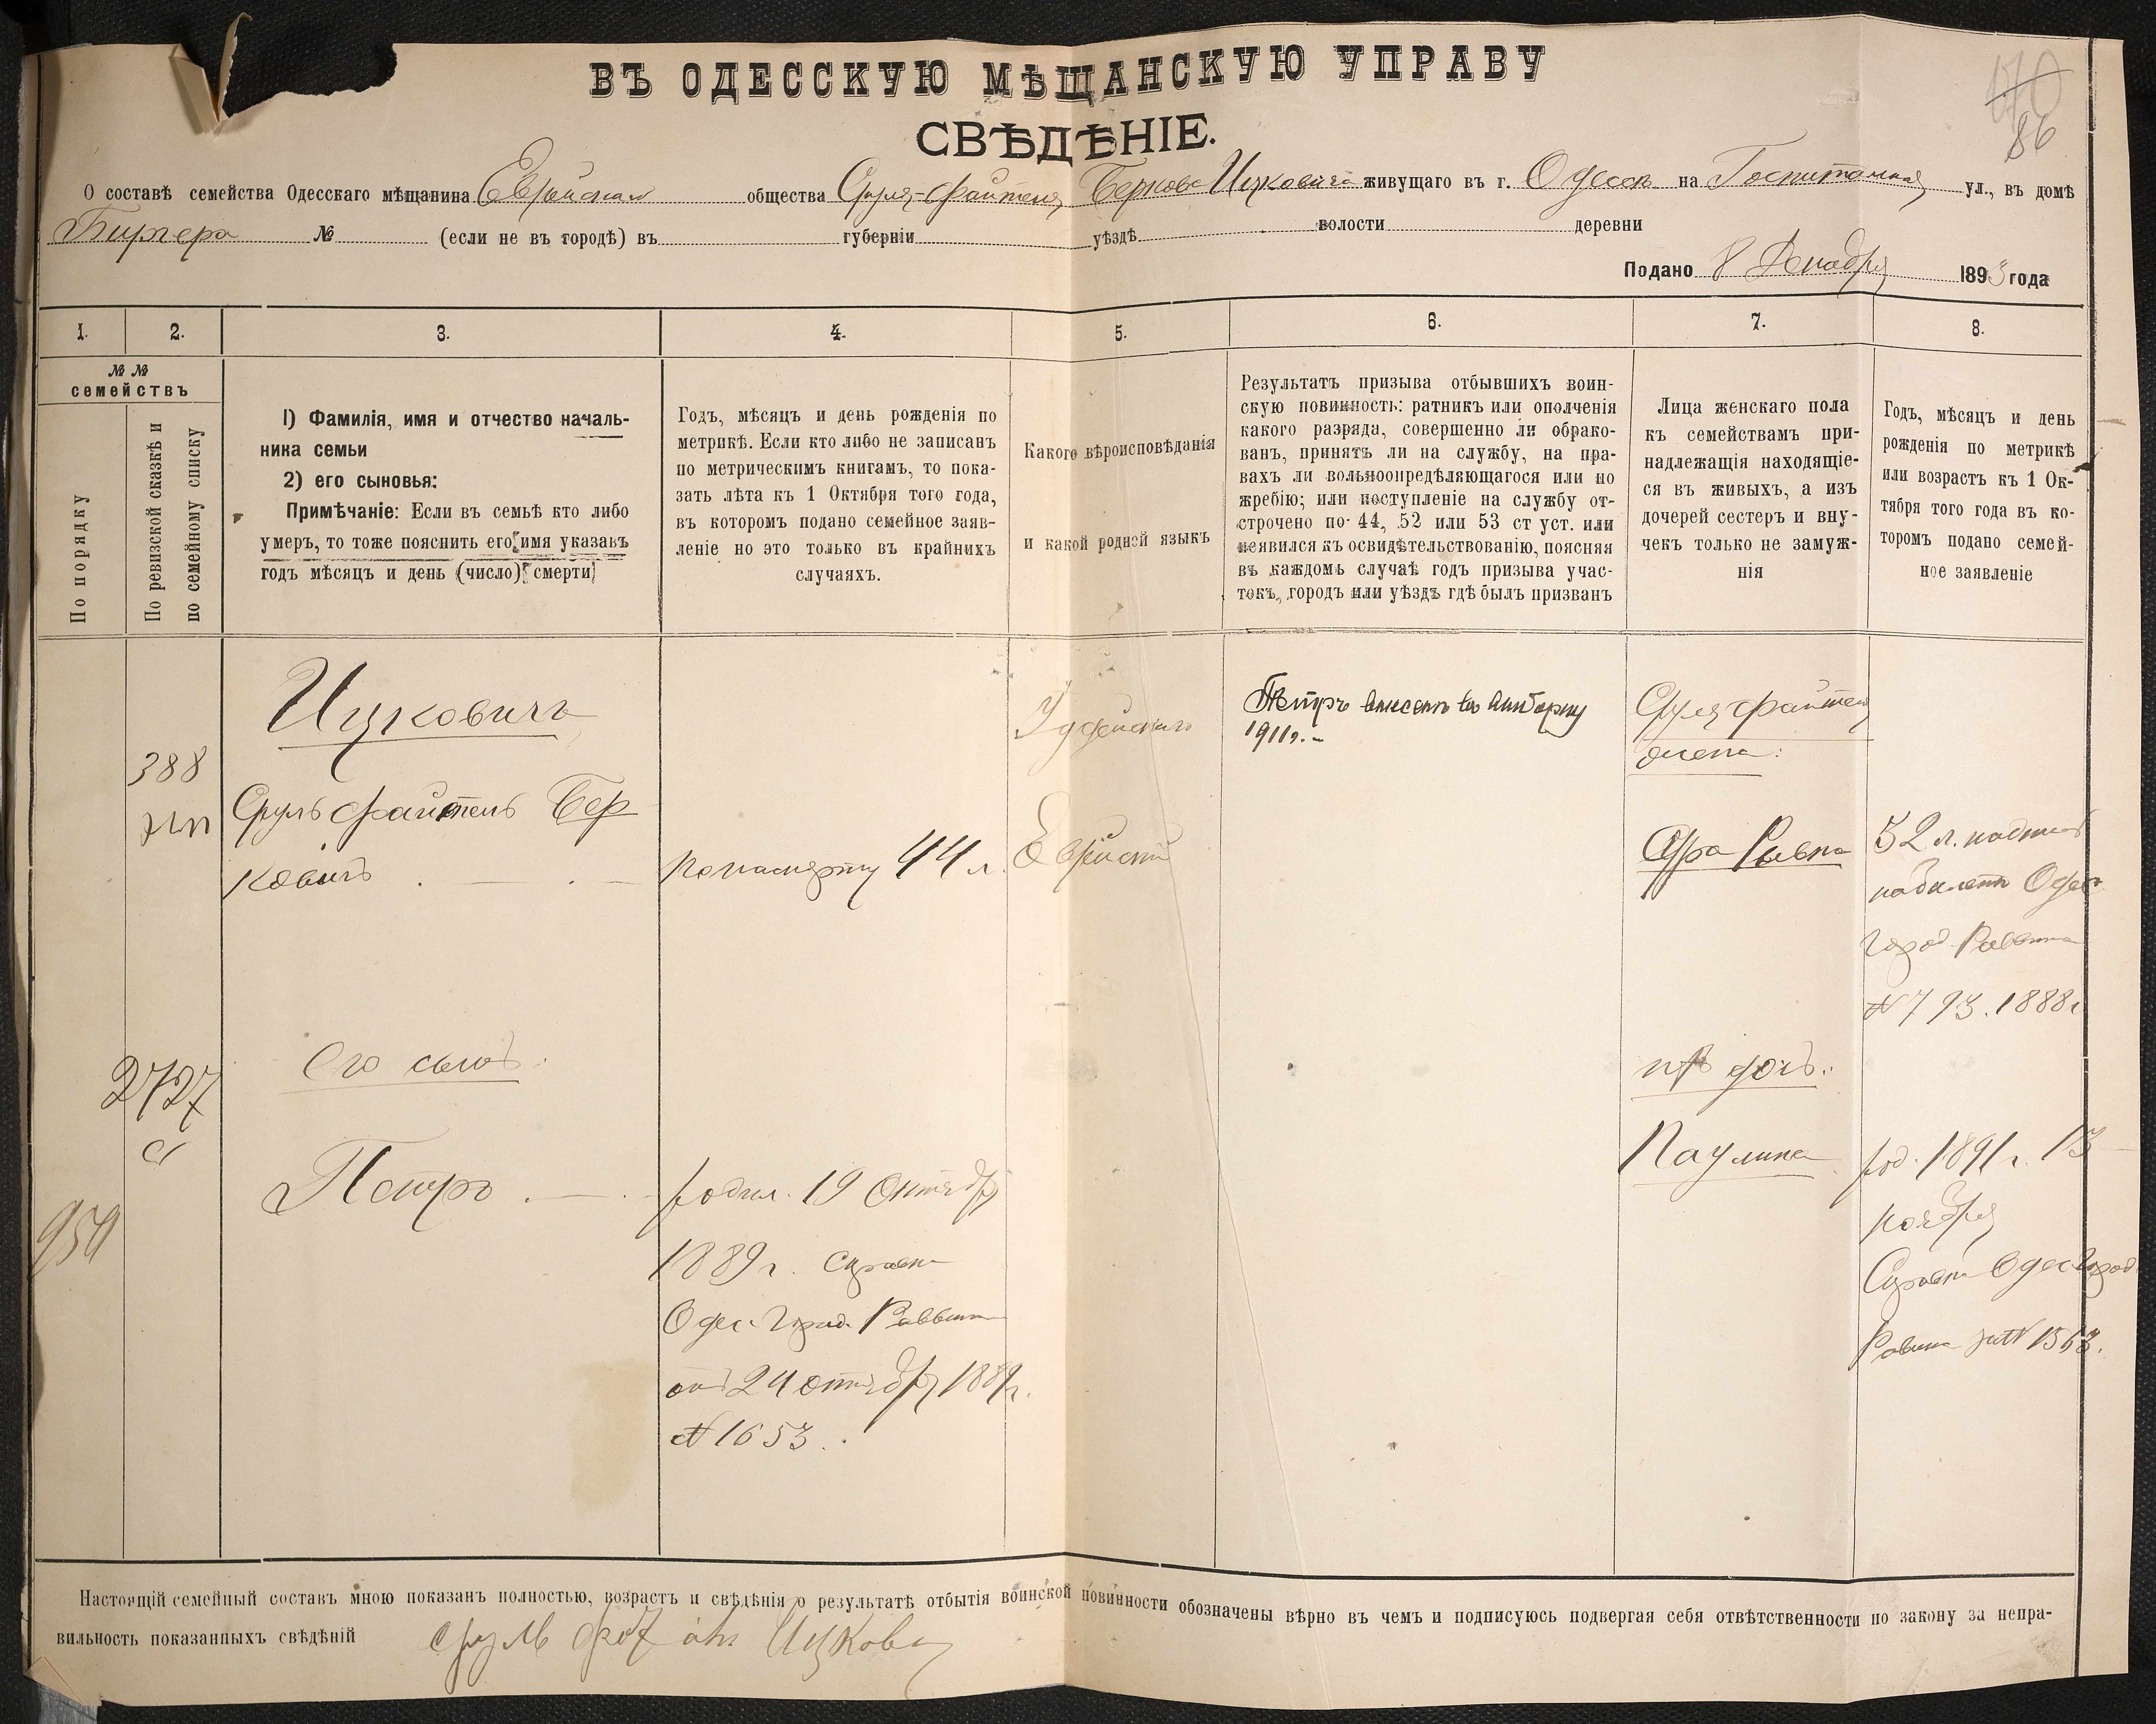 ВЪ ОДЕССКУЮ МѢЩАНСКУЮ УПРАВУ
СВѢДѢНІЕ.
86
О составѣ семейства Одесскаго мѣщанина Еврейскаго общества Сруля-Файтеля Беркова Ицковича живущаго въ г. Одессѣ на Госпитальной ул., въ домѣ
№ (если не въ городѣ) въ губерніи уѣздѣ волости деревни
Подано 8 Декабря 1893 года
1. 2. 3. 4. 5. 6. 7. 8.
№ №
семействъ
По порядку
По ревизской сказкѣ и
по семейному списку
1) Фамилія, имя и отчество началь-
ника семьи
2) его сыновья:
Примѣчаніе: Если въ семьѣ кто либо
умеръ, то тоже пояснить его имя указавъ
годъ мѣсяцъ и день (число) смерти
Годъ, мѣсяцъ и день рожденія по
метрикѣ. Если кто либо не записанъ
по метрическимъ книгамъ, то пока-
зать лѣта къ 1 Октября того года,
въ которомъ подано семейное заяв-
леніе но это только въ крайнихъ
случаяхъ.
Какого вѣроисповѣданія
и какой родной языкъ
Результатъ призыва отбывшихъ воин-
скую повинность: ратникъ или ополченія
какого разряда, совершенно ли обрако-
ванъ, принятъ ли на службу, на пра-
вахъ ли вольноопредѣляющагося или по
жребію; или поступленіе на службу от-
строчено по 44, 52 или 53 ст уст. или
неявился къ освидѣтельствованію, поясняя
въ каждомъ случаѣ годъ призыва учас-
токъ, городъ или уѣздъ гдѣ былъ призванъ
Лица женскаго пола
къ семействамъ при-
надлежащія находящіе-
ся въ живыхъ, а изъ
дочерей сестеръ и вну-
чекъ только не замуж-
нія
Годъ, мѣсяцъ и день
рожденія по метрикѣ
или возрастъ къ 1 Ок-
тября того года въ ко-
торомъ подано семей-
ное заявленіе
Ицковичъ
388
Сруль Файтель Бер
ковичъ
по паспорту 44 л.
Іудейскаго
Еврейскій
Петръ внесенъ въ выборку
1911 г.
Сруля Файтеля
жена:
Сура Ривка
32 л.
Одес
Город Раввина
№ 793. 1888 г
2727
с
959
Его сынъ
Петръ
родил. 19 Октября
1889 г. справка
Одес. Город. Раввина
отъ 24 октября 1889 г.
№ 1653.
дочь:
Паулина
род. 1891 г. 13
ноября
Справка Одес Город
Равина за № 1563.
Настоящій семейный составъ мною показанъ полностью, возрастъ и свѣдѣнія о результатѣ отбытія воинской повинности обозначены вѣрно въ чемъ и подписуюсь подвергая себя отвѣтственности по закону за непра-
вильность показанныхъ свѣдѣній